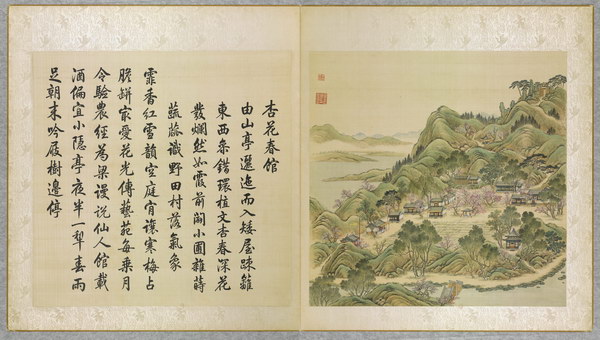 杏花春館
由山亭邐迤而入矮屋疎籬
東西叅錯環植文杏春深花
發爛然如霞前闢小圃雜蒔
蔬蓏識野田村落氣象
霏香紅雪韻空庭肎讓寒梅占
膽缾冣愛花光傳藝苑每乘月
令驗農經為梁謾說仙人館載
酒偏宜小隱亭夜半一犂春雨
足朝來吟屐樹邊停